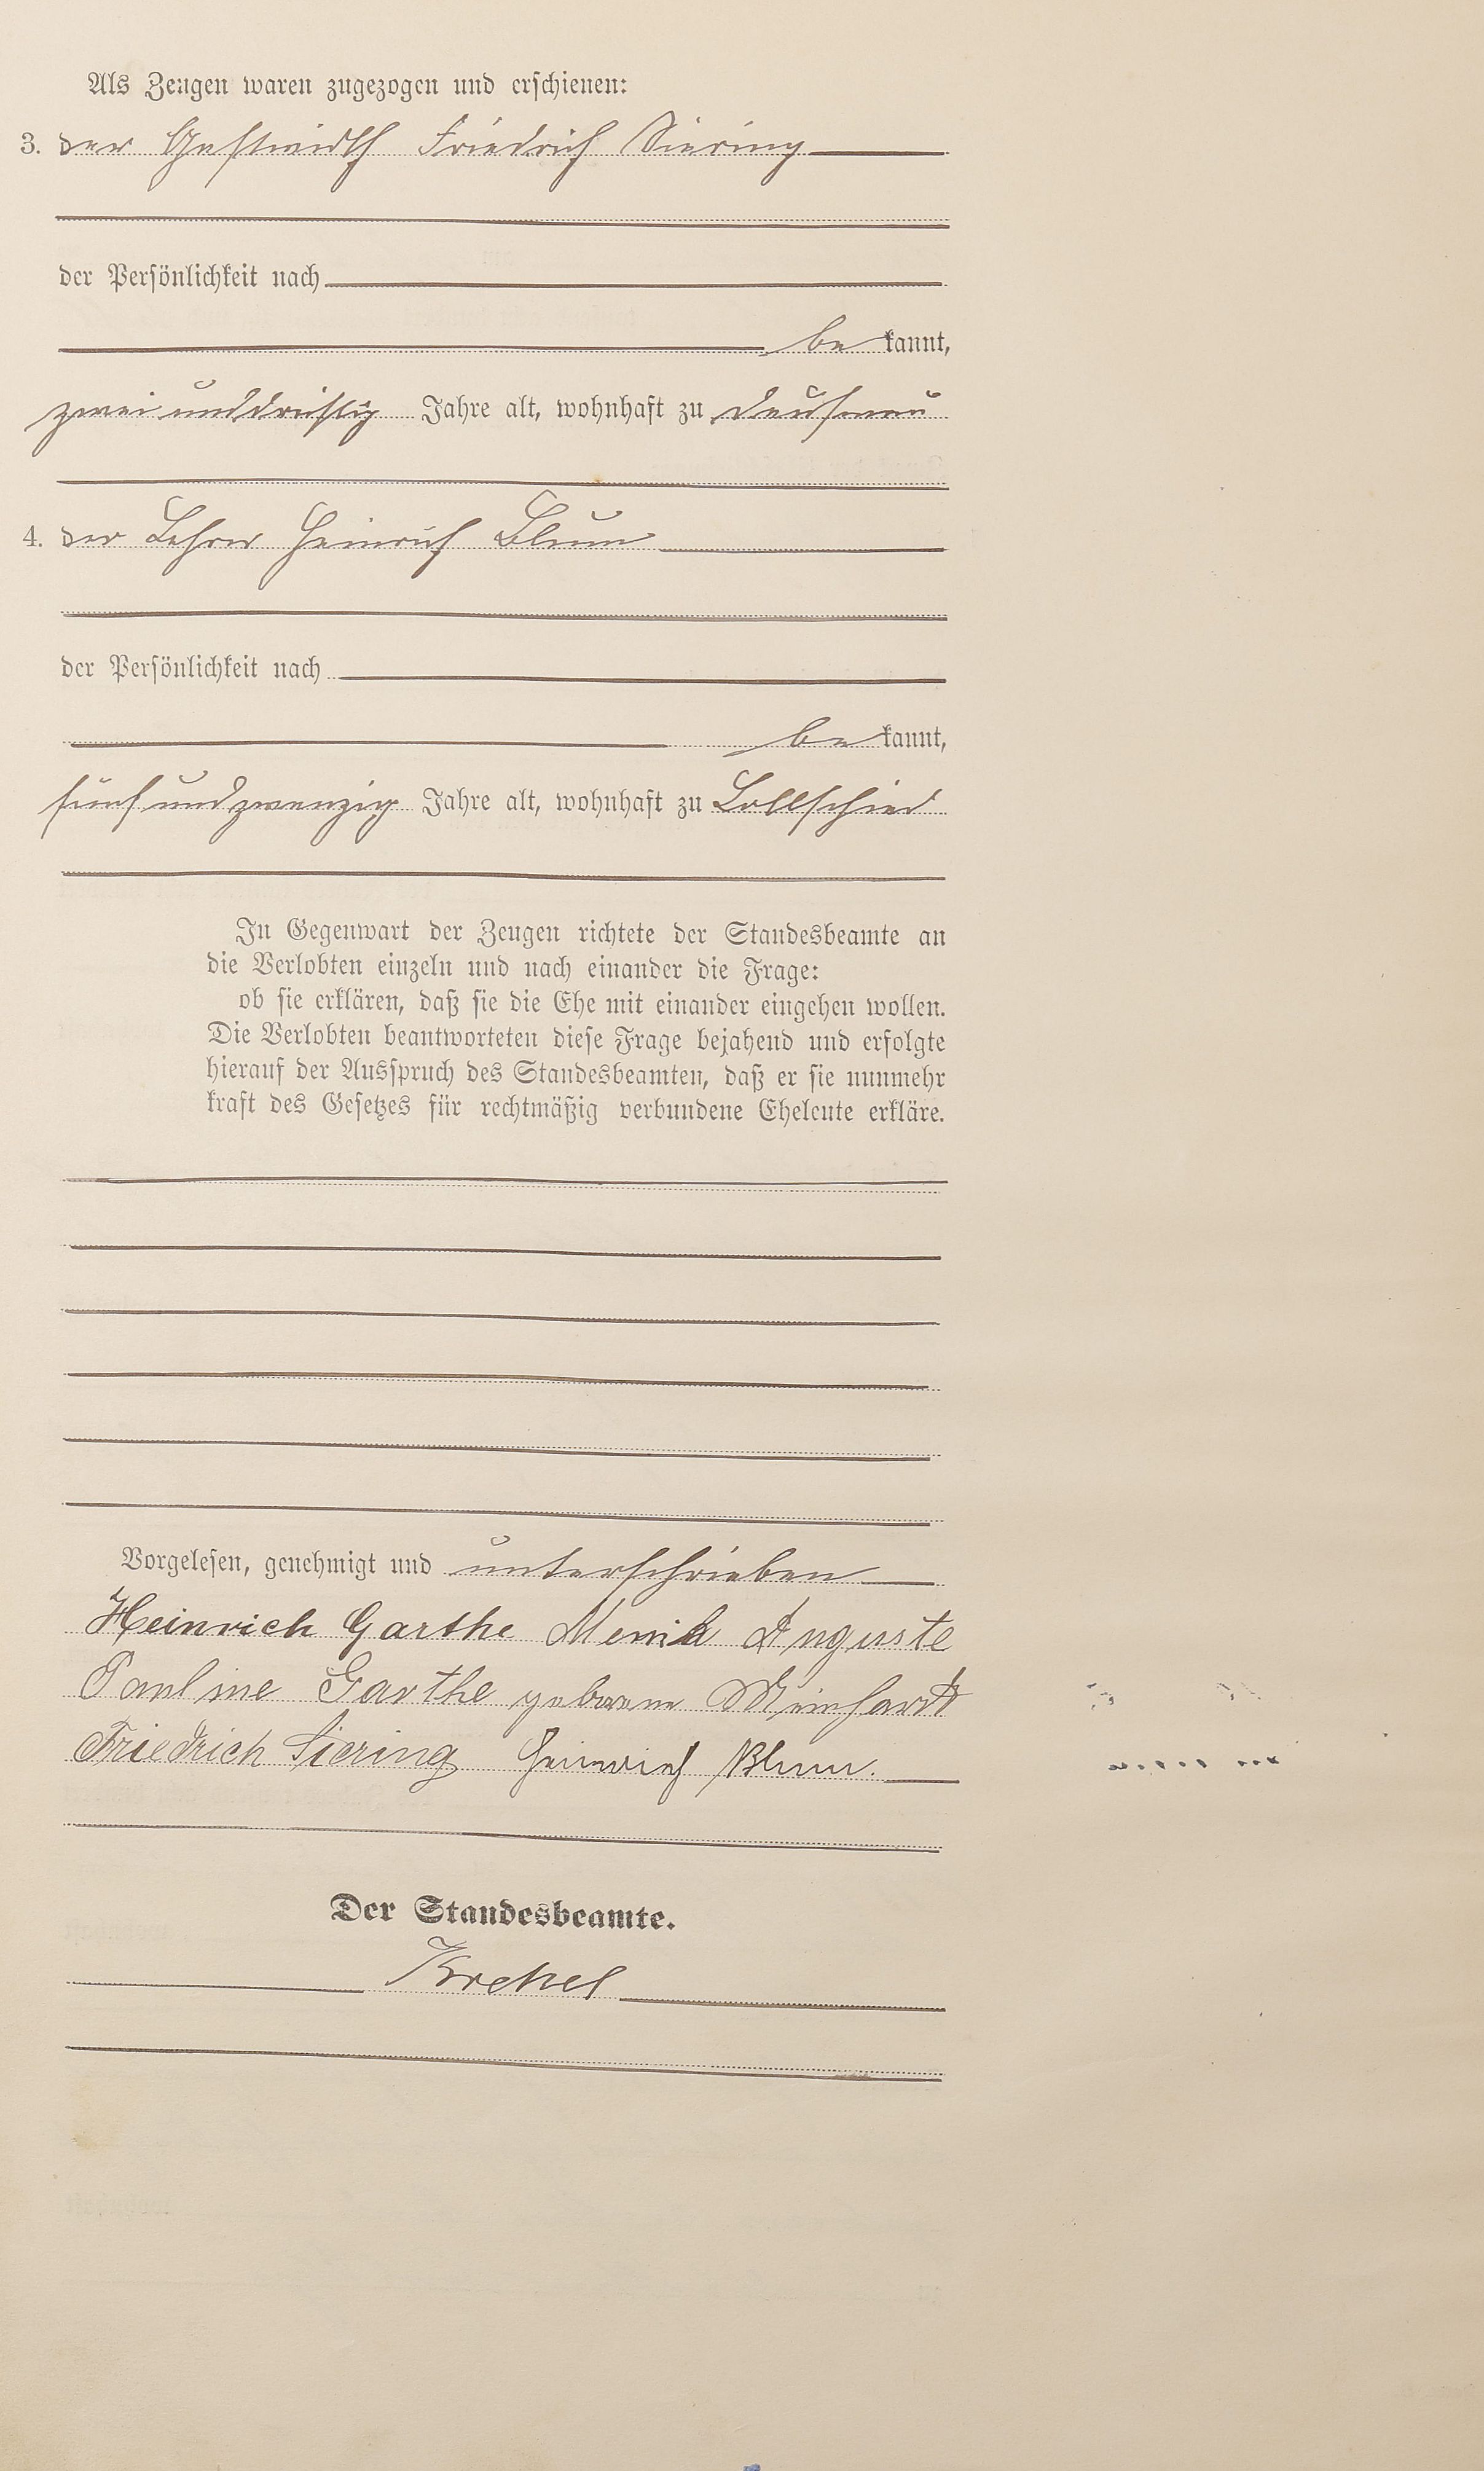 Als Zeugen waren zugezogen und erschienen:
3. der Gastwirth Friedrich Siering
der Persönlichkeit nach
be kannt,
zwei unddreißig Jahre alt, wohnhaft zu
4. der Lehrer Heinrich Blum
der Persönlichkeit nach
be kannt,
fünf undzwanzig Jahre alt, wohnhaft zu Lollschied
In Gegenwart der Zeugen richtete der Standesbeamte an
die Verlobten einzeln und nach einander die Frage:
ob sie erklären, daß sie die Ehe mit einander eingehen wollen.
Die Verlobten beantworteten diese Frage bejahend und erfolgte
hierauf der Ausspruch des Standesbeamten, daß er sie nunmehr
kraft des Gesetzes für rechtmäßig verbundene Eheleute erkläre.
Vorgelesen, genehmigt und unterschrieben
Heinrich Garthe Auguste
Pauline Garthe geborene Meinhardt
Friedrich Siering Heinrich Blum.
Der Standesbeamte.
Krekel